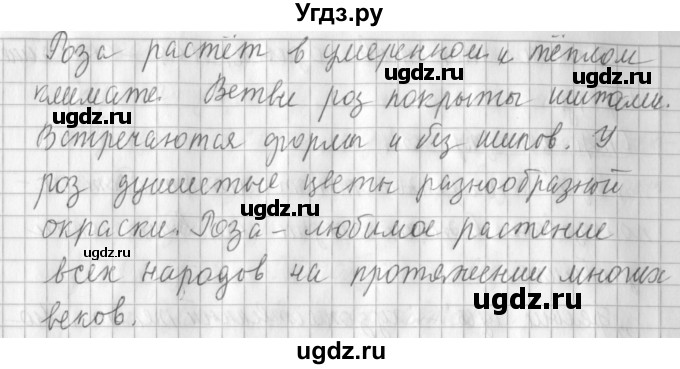 Угдз.ру
Роза растёт в умеренном и тёплом
ugdz.ru ugdz.ru
климате. Ветви роз покрыты шипами.
ugdz.ru
Встречаются формы и без шипов. У
ugdz.ru
роз душистые цветы разнообразной
ugdz.ru
окраски. Роза – любимое растение
ugdz.ru
всех народов на протяжении многих
ugdz.ru
веков.
ugdz.ru